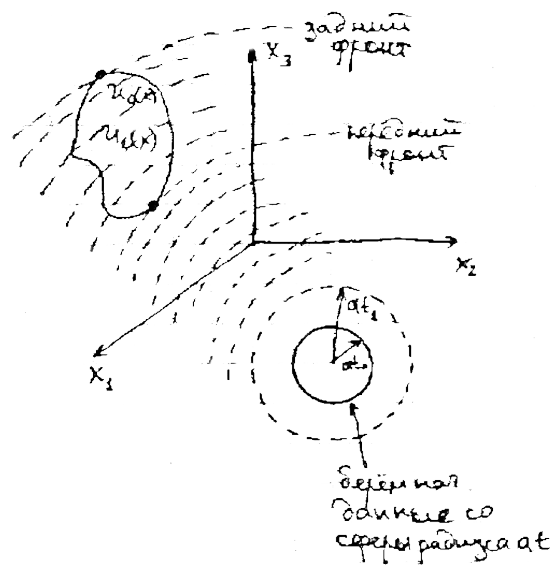 задний
фронт
X₃
u₀(x)
u₁(x)
передний
фронт
X₂
X₁
at₁
at₀
берём нач
данные со
сферы радиуса at